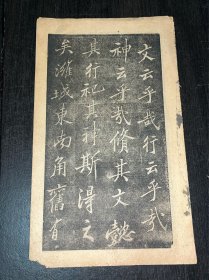 文云乎哉行云乎哉
神云乎哉脩其文懿
其行祀其神斯得之
矣濰城東南角舊有